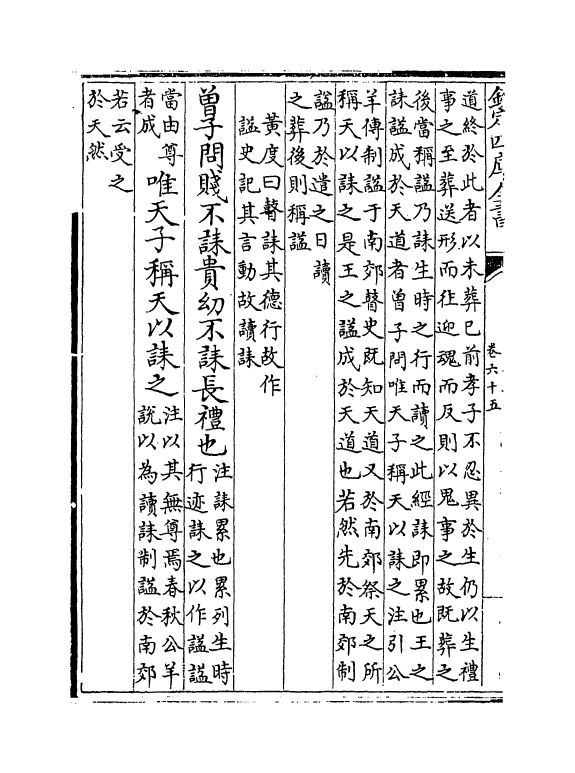 欽定四庫全書
卷六十五
道終於此者以未葬已前孝子不忍異於生仍以生禮
事之至葬送形而往迎魂而反則以鬼事之故既葬之
後當稱諡乃誄生時之行而讀之此經誄即累也王之
誄諡成於天道者曾子問唯天子稱天以誄之注引公
羊傳制諡于南郊瞽史既知天道又於南郊祭天之所
稱天以誄之是王之諡成於天道也若然先於南郊制
諡乃於遣之日讀
之葬後則稱諡
黄度曰瞽誄其德行故作
諡史記其言動故讀誄
曾子問賤不誄貴幼不誄長禮也
注誄累也累列生時
行迹誄之以作諡諡
當由尊
者成
唯天子稱天以誄之
注以其無尊焉春秋公羊
說以為讀誄制諡於南郊
若云受之
於天然